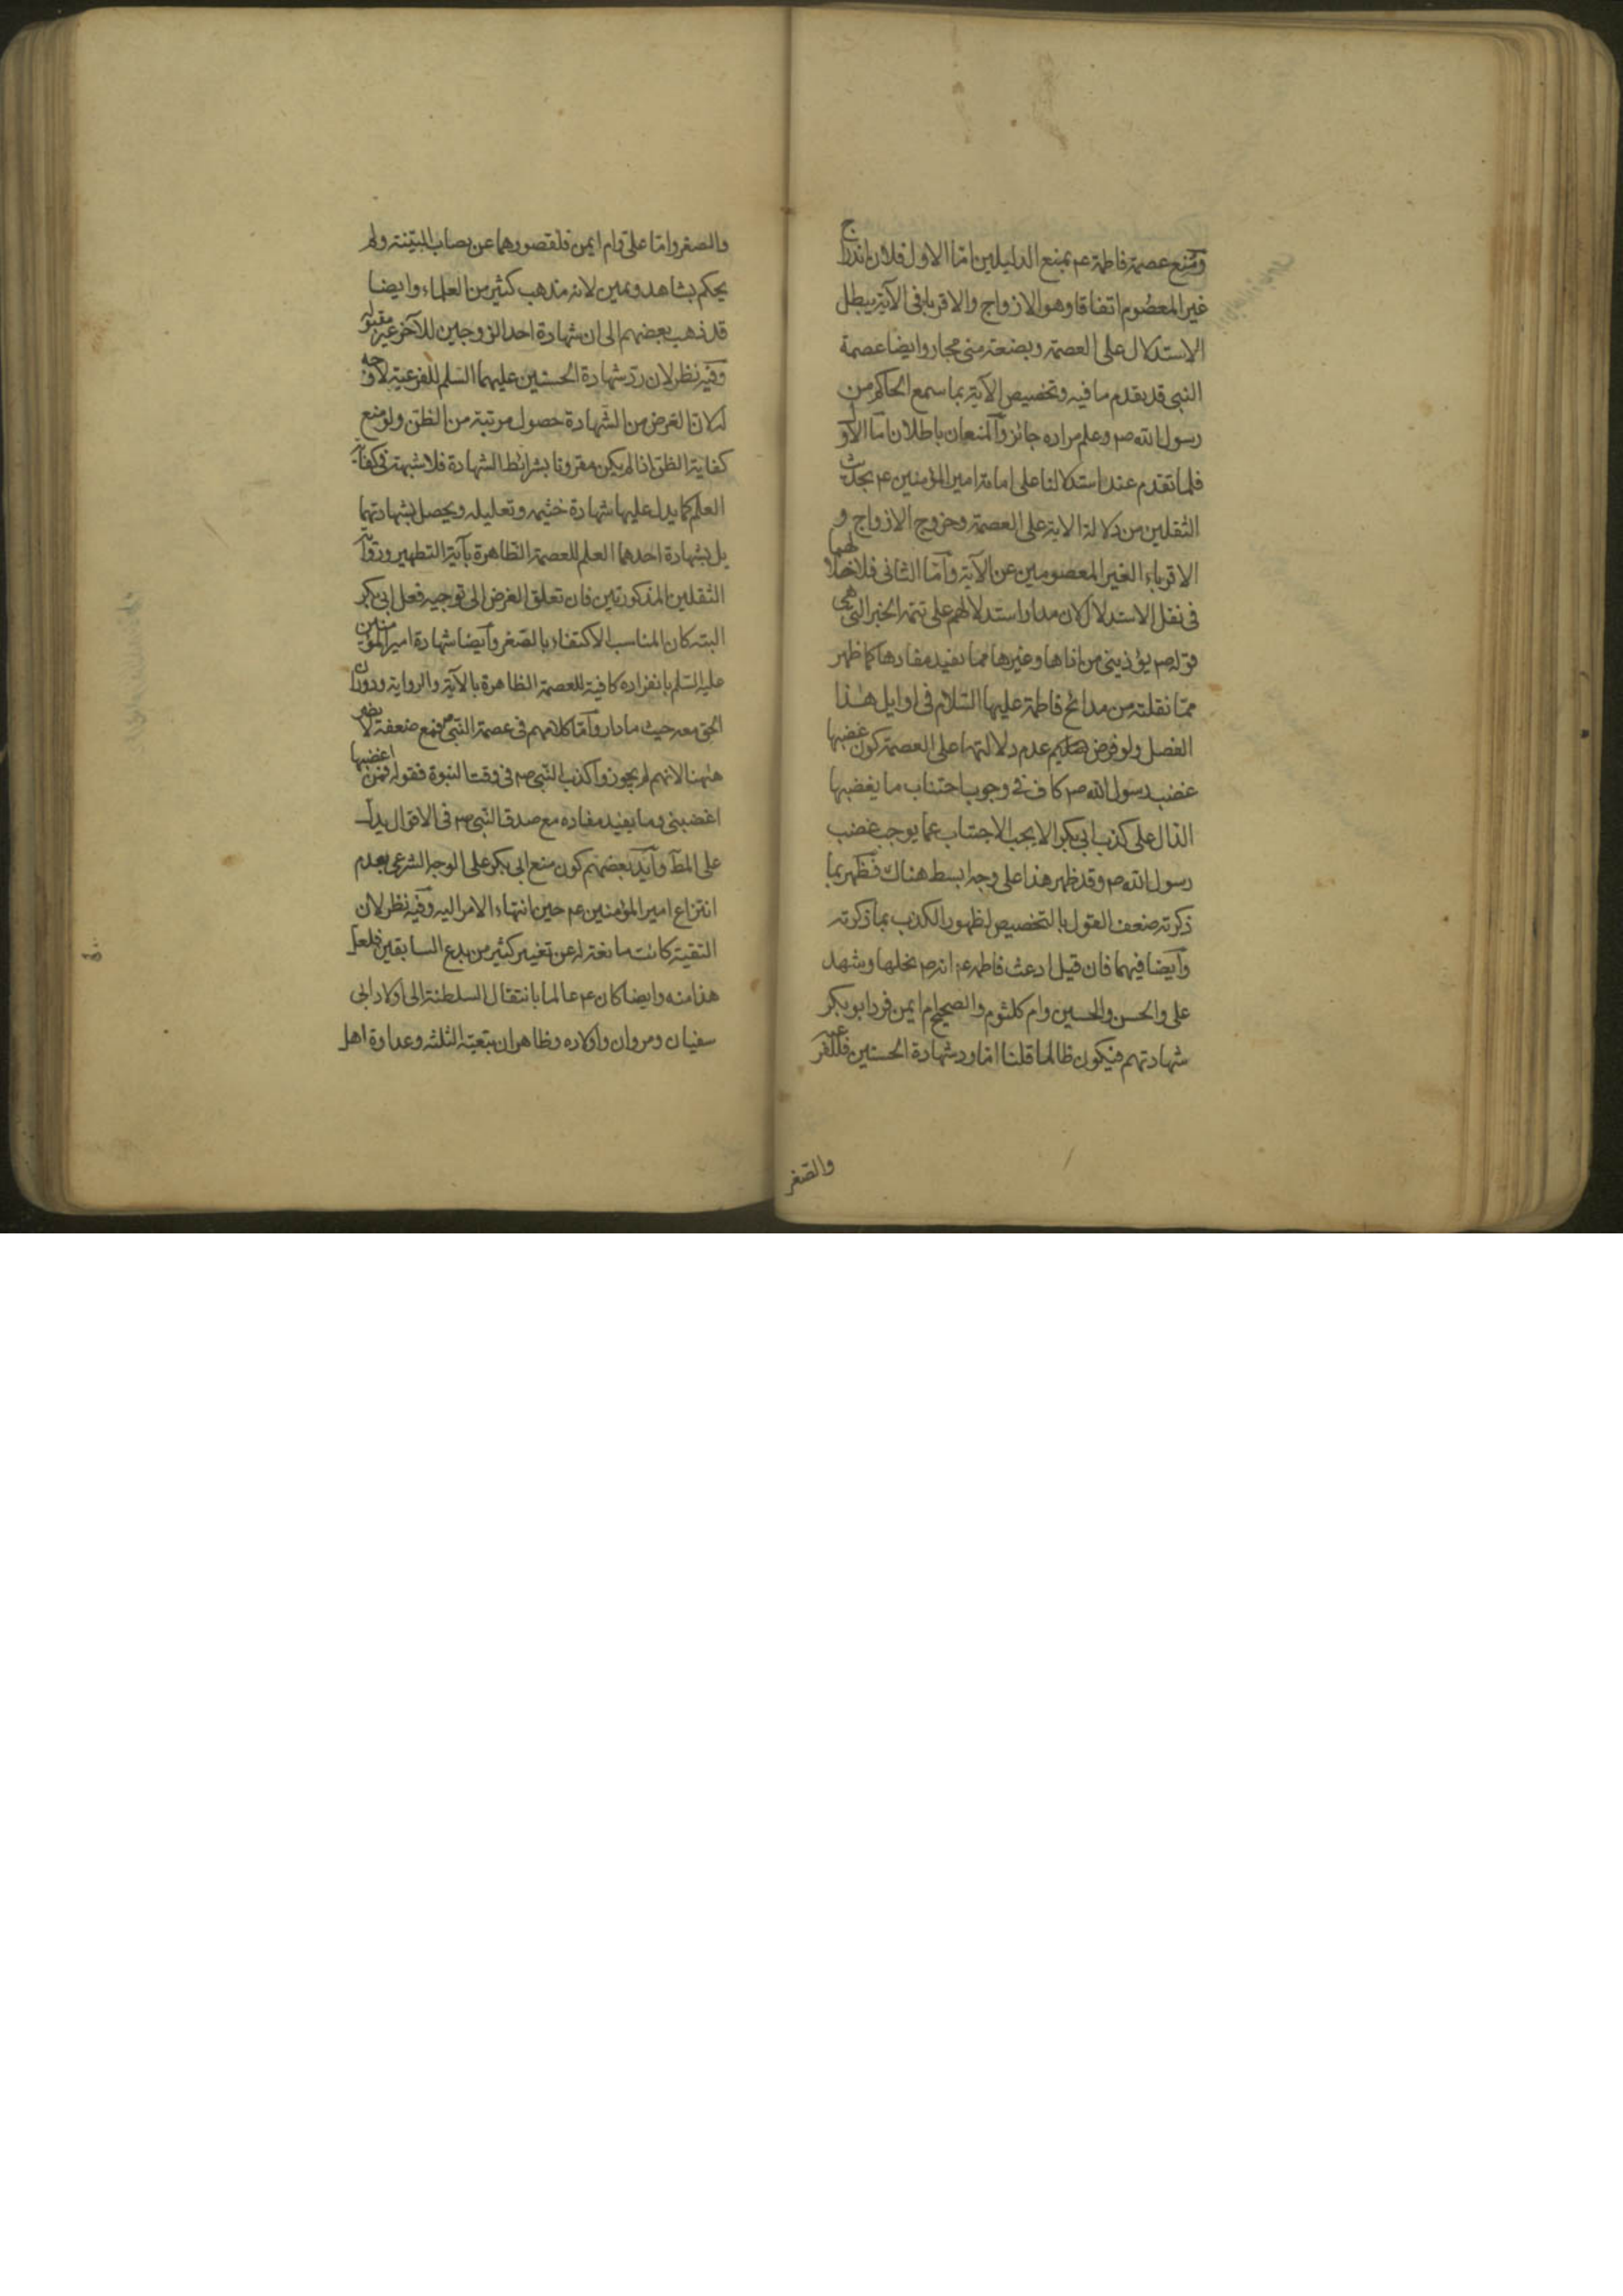 ومنع عصمة فاطمة ع بمنع الدليلين اما الاول فلان اندراج
غير المعصوم اتفاقا وهو الازواج والاقرباء فى الآية يبطل
الاستدلال على العصمة وبضعة منى مجاز وايضا عصمة
النبى قد تقدم ما فيه وتخصيص الآية بما سمع الحاكم من
رسول الله ص وعلم مراده جائز والمنعان باطلان اما الاو
فلما تقدم عند استدلالنا على امامة امير المؤمنين ع بحديث
الثقلين من دلالة الاية على العصمة وخروج الازواج و
الاقرباء الغير المعصومين عن الآية واما الثانى فلاخلالهم
فى نقل الاستدلال لان مدار استدلالهم على تتمة الخبر التى هى
قوله ص يؤذينى من اذاها وغيرها مما يفيد مفادها كما ظهر
مما نقلته من مدائح فاطمة عليها السلام فى اوايل هذا
الفصل ولو فرض عدم دلالتها على العصمة كون غضبها
غضب رسول الله ص كاف فى وجوب اجتناب ما يغضبها
الدال على كذب ابى بكر الا يجب الاجتناب عما يوجب غضب
رسول الله ص وقد ظهر هذا على وجه ابسط هناك فظهر بما
ذكرته ضعف القول بالتخصيص لظهور الكذب بما ذكرته
وايضا فيهما فان قيل ادعت فاطمة ع انه ص نحلها وشهد
على والحسن والحسين وام كلثوم والصحيح ام ايمن فرد ابو بكر
شهادتهم فيكون ظالما قلنا اما رد شهادة الحسنين فللفرعية
والصغر
والصغر واما على وام ايمن فلقصورهما عن نصاب البينة ولم
يحكم بشاهد ويمين لانه مذهب كثير من العلماء وايضا
قد ذهب بعضهم الى ان شهادة احد الزوجين للآخر غير مقبولة
وفيه نظر لان رد شهادة الحسنين عليهما السلم للفرعية لا وجه
له لان الغرض من الشهادة حصول مرتبة من الظن ولو منع
كفاية الظن اذا لم يكن مقرونا بشرائط الشهادة فلا شبهة فى كفاية
العلم كما يدل عليها شهادة خثيمه وتعليله ويحصل بشهادتهما
بل بشهادة احدهما العلم للعصمة الظاهرة بآية التطهير ورواية
الثقلين المذكورتين فان تعلق الغرض الى توجيه فعل ابى بكر
البته كان المناسب الاكتفاء بالصغر وايضا شهادة امير المؤمنين
عليه السلم بانفراده كافية للعصمة الظاهرة بالآية والرواية ودوران
الحق معه حيث ما دار واما كلامهم فى عصمة النبى ص فمع ضعفه لا يضر
ههنا لانهم لم يجوزوا كذب النبى ص فى وقت النبوة فقوله فمن اغضبها
اغضبنى وما يفيد مفاده مع صدق النبى ص فى الاقوال يدل
على المط وايد بعضهم كون منع ابى بكر على الوجه الشرعى بعدم
انتزاع امير المؤمنين ع حين انتهاء الامر اليه وفيه نظر لان
التقية كانت مانعة له عن تغيير كثير من بدع السابقين فلعل
هذا منه وايضا كان ع عالما بانتقال السلطنة الى اولاد ابى
سفيان ومروان واولاده وظاهر ان بتبعية الثلثه وعداوة اهل